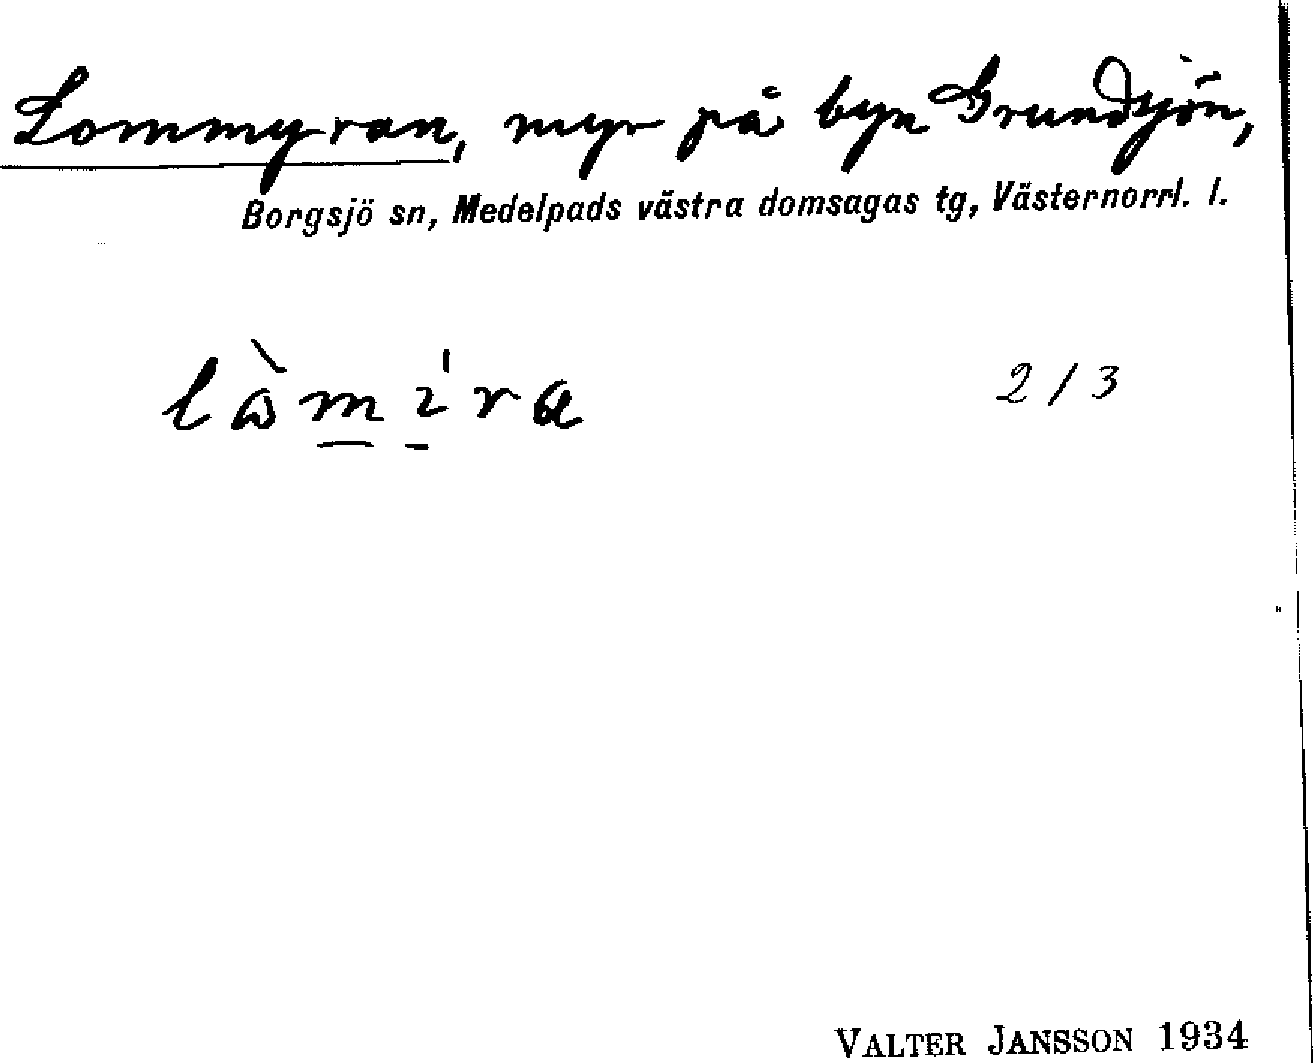 Lommyran, myr på byn Grundsjön,
Borgsjö sn, Medelpads västra domsagas tg, Västernorrl. l.
2/3
VALTER JANSSON 1934